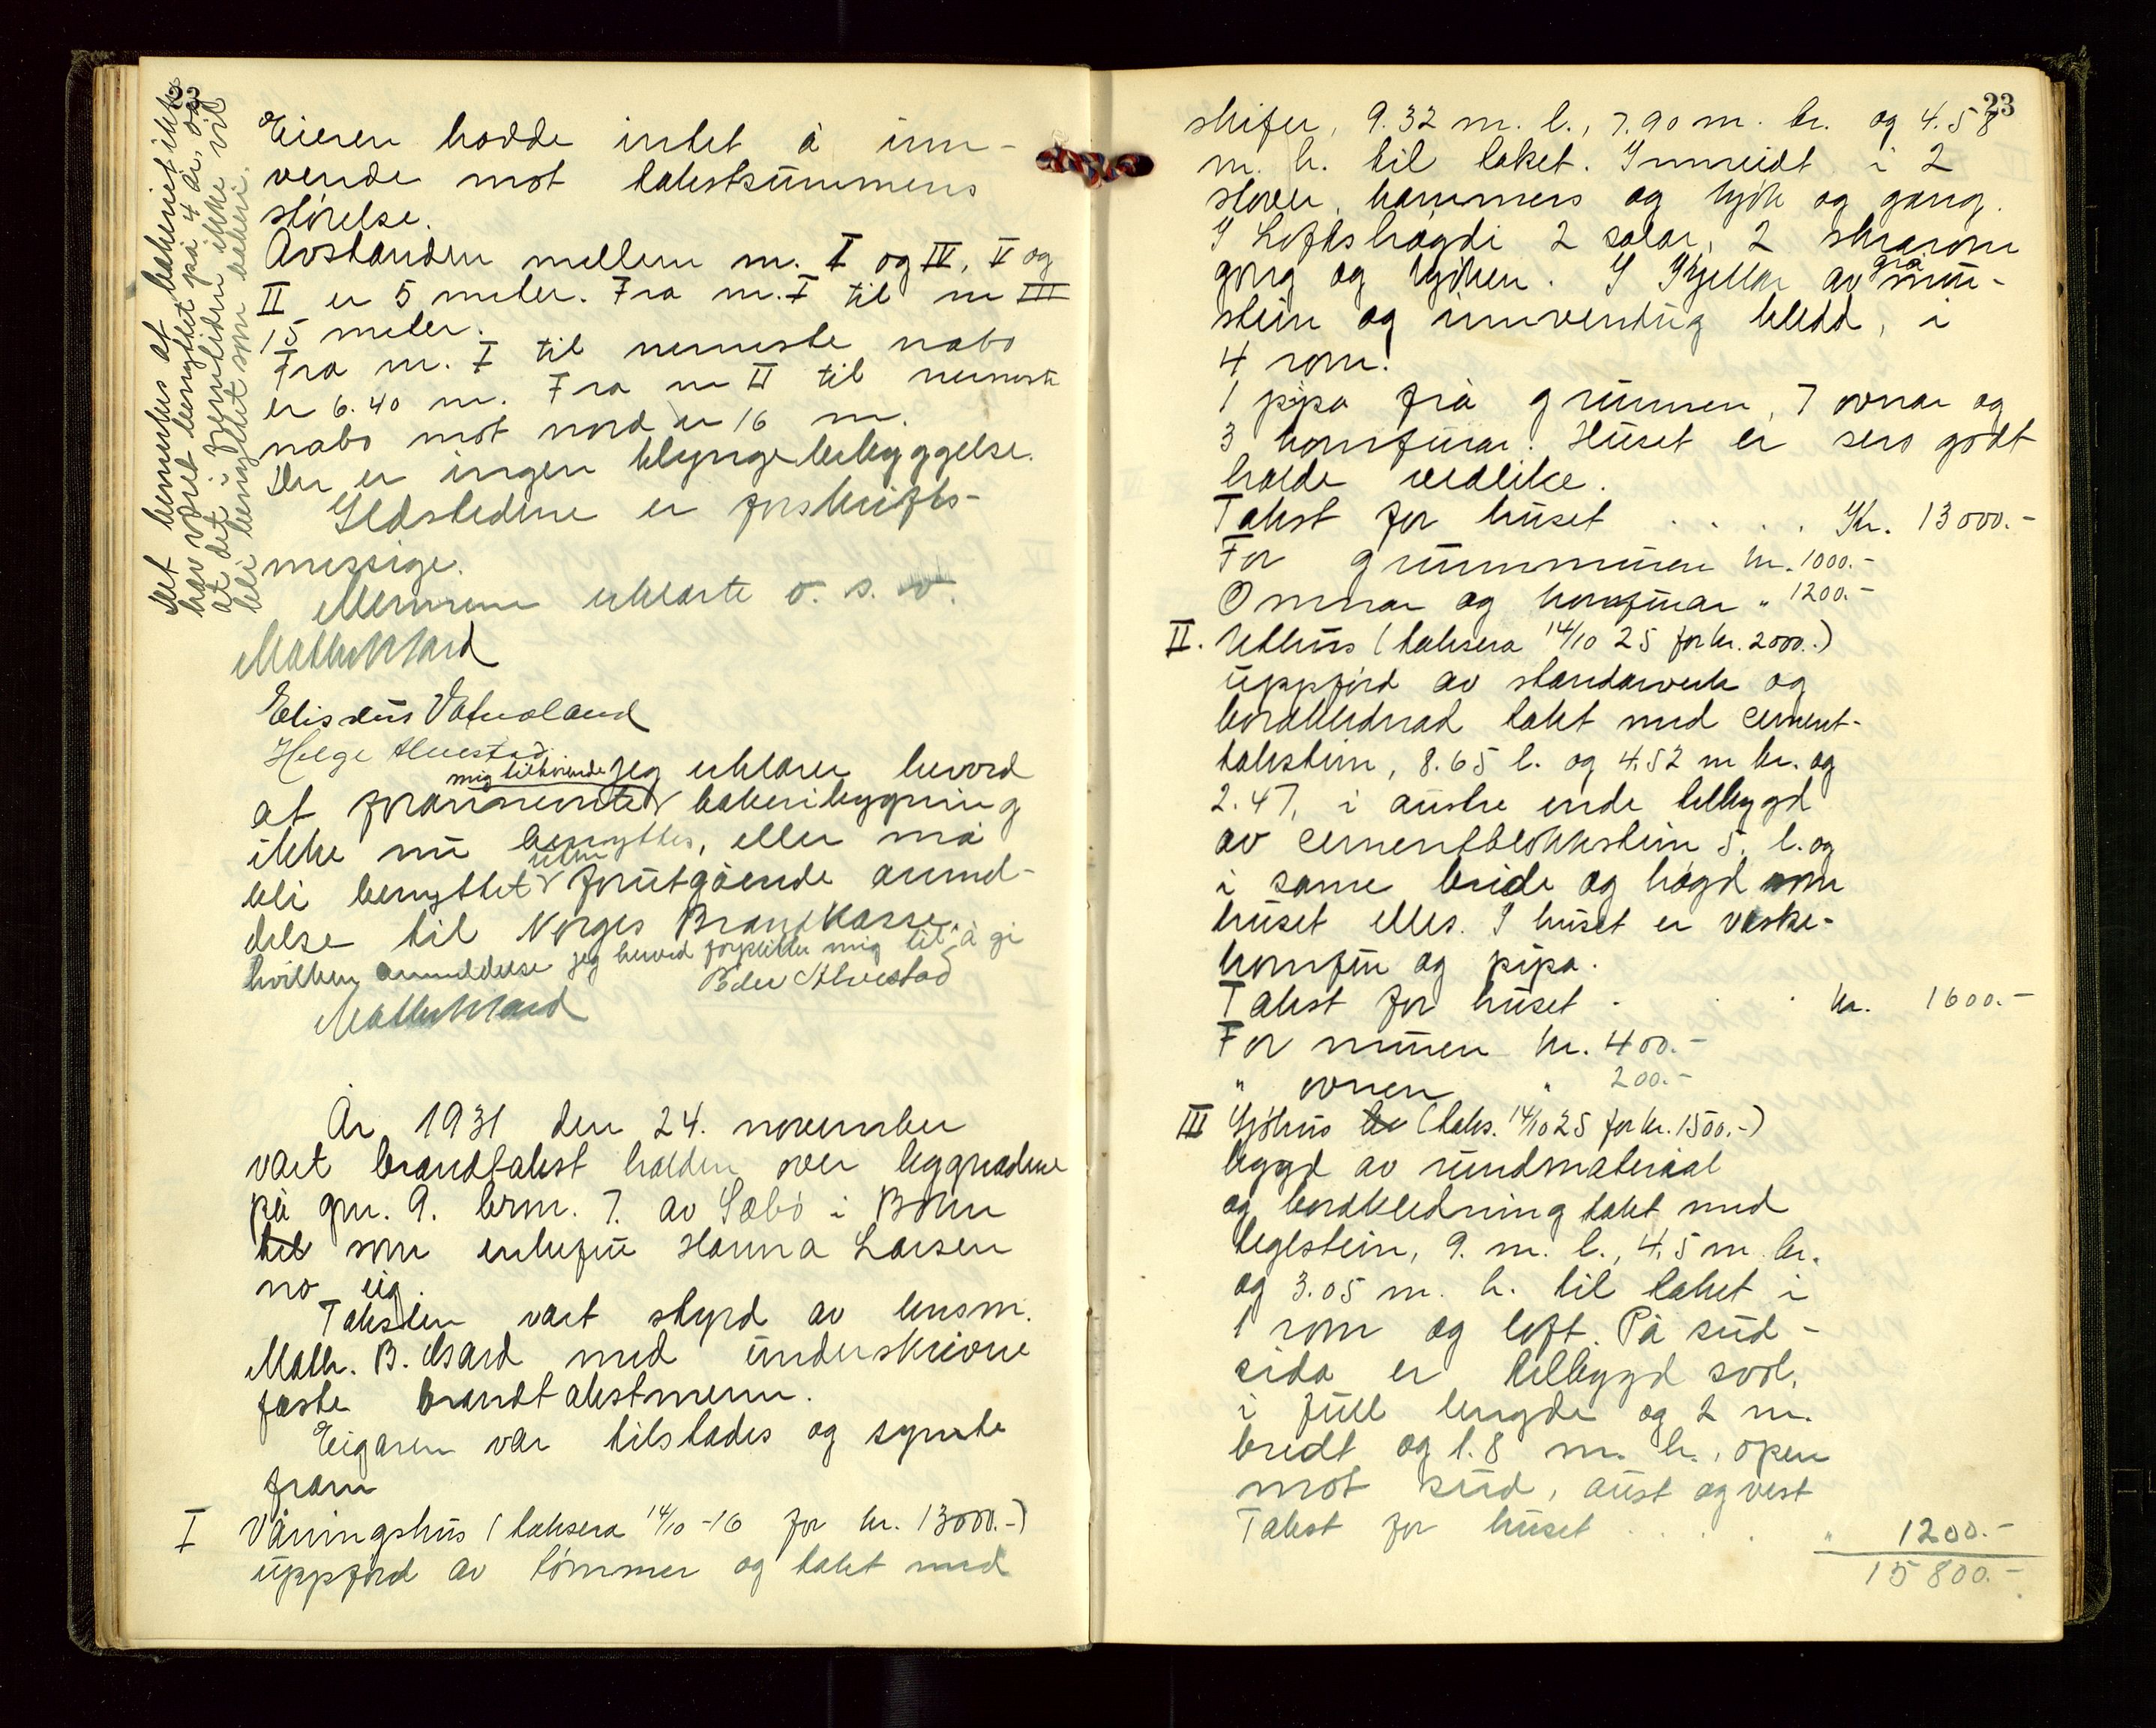 Det bemerkes at bakeriet ikke
hav vore benyttet på 4 år, og
at det i fremtiden ikke vil
bli benyttet som bakeri.
Eieren hadde intet å inn-
vende mot takstsummens
størelse.
Avstanden mellem nr. I og IV, V og
II er 5 meter. Fra nr. I til nr III
15 meter.
Fra nr. I til nermeste nabo
er 6.40 m. Fra nr II til nermeste
nabo mot nord er 16 m.
Der er ingen klyngebebyggelse.
Ildstedene er forskrifts-
messige.
Mennene erklærte o. s. v.
Math Msard
Elisæus Vatnaland
Helge Alvestad
mig tilhørende Jeg erklærer herved
at forannemte bakeribygning
ikke nu benyttes, eller må
uten
bli benyttet forutgående anmel-
delse til Norges Brandkasse,
hvilken anmeldelse jeg herved forplikter mig til å gi
Peder Alvestad
Math Msard
År 1931 den 24. november
vart brandtakst halden over byggnadene
på gnr. 9. brnr. 7. av Sæbø i Bømn
til som enkefru Hanna Larsen
no eig.
Taksten vart styrd av lensm.
Math. B. Msard med underskrivne
faste brandtakstmenn.
Eigaren var tilstades og synte
fram
I Våningshus (taksera 14/10-16 for kr. 13000.-)
uppførd av tømmer og takt med
23
skifer, 9.32 m. l., 7.90 m. br. og 4.58
m. h. til taket. Innreidt i 2
stover, kammers og kjøk og gang.
I Loftshøgdi 2 salar, 2 skrarom
gang og kjøken. I Kjellar av grå mur-
stein og innvendug kledd, i
4 rom.
1 pipa frå grunnen, 7 ovnar og
3 komfurar. Huset er sers godt
halde vedlike.
Takst for huset . . . . Kr. 13000.-
For grunnmuren kr. 1000.-
Omnar og komfurar " 1200.-
II. Uthus (taksera 14/10 25 for kr. 2000.-)
uppførd av standarverk og
bordklednad takt med cement-
takstein, 8.65 l. og 4.52 m br. og
2.47, i austre ende tilbygd
av cementblokkstein 5. l. og
i same breide og høgd som
huset elles. I huset er veske-
komfur og pipa.
Takst for huset . . . kr. 1600.-
For muren kr. 400.-
" ovnen " 200.-
III Kjøhus (taks. 14/10 25 for kr. 1500.-)
bygd av rundmateriaal
og bordkledning takt med
teglstein, 9. m. l., 4.5 m. br.
og 3.05 m. h. til taket i
1 rom og loft. På sud-
sida er tilbygd svol,
i full lengde og 2 m.
bredt og 1.8 m. h., open
mot sud, aust og vest
Takst for huset . . . . " 1200.-
15800.-